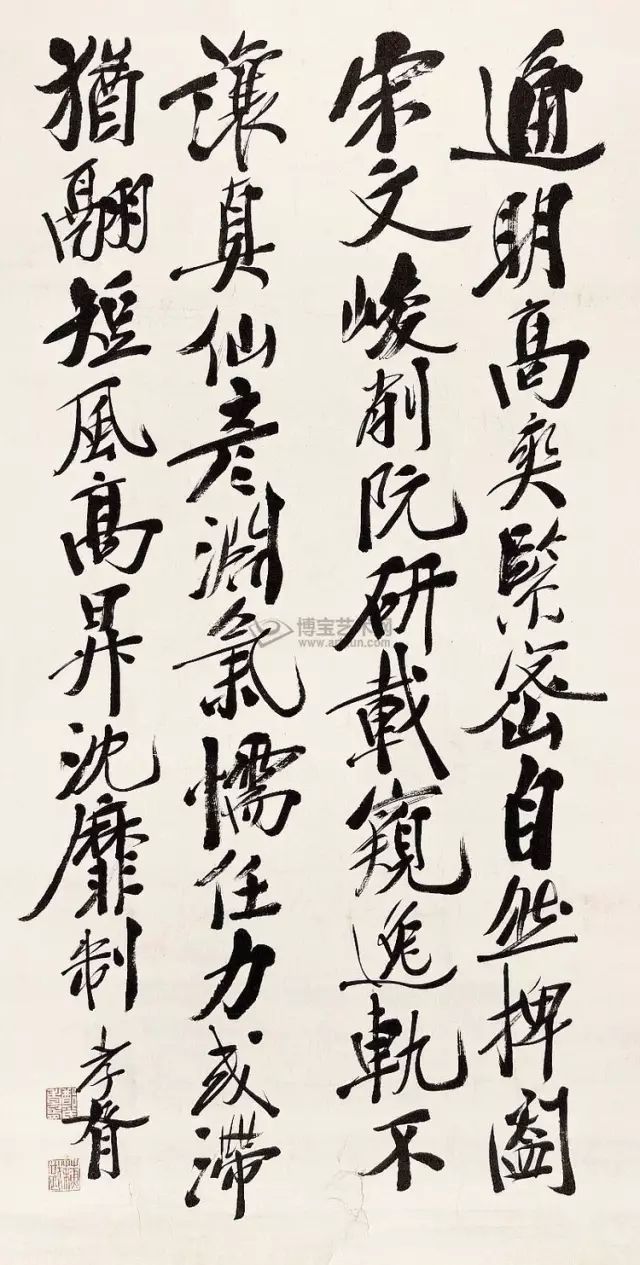 通明高爽緊密自然捭闔
宋文峻削阮研載窺逸軌不
讓真仙彦淵氣懦任力或滯
猶翮短風高昇沈靡制
孝胥
博宝艺术网